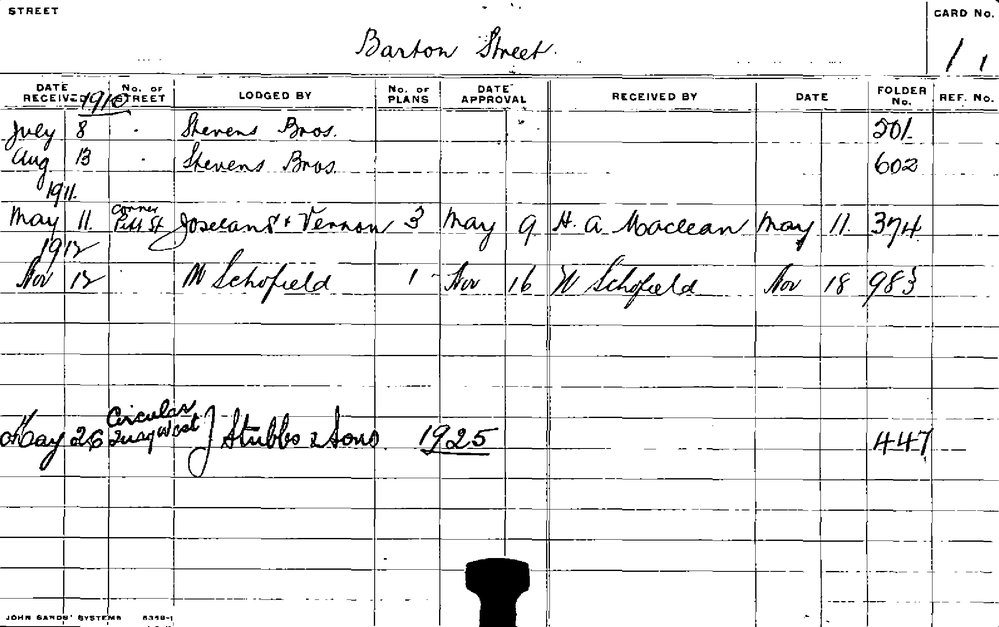 STREET
CARD No.
Barton Street.
1 1
DATE RECEIVED No. OF STREET LODGED BY No. OF PLANS DATE APPROVAL RECEIVED BY DATE FOLDER No. REF. No.
1910
July 8 Stevens Bros. 501
Aug 13 Stevens Bros. 602
1911.
May 11. corner Pitt St & Vernon 3 May 9 H. A. Maclean May 11. 374
1912
Nov 12 W Schofield 1 Nov 16 W Schofield Nov 18 983
May 26 Circular Quay West J Stubbs & Sons 1925 447
JOHN SANDS' SYSTEMS